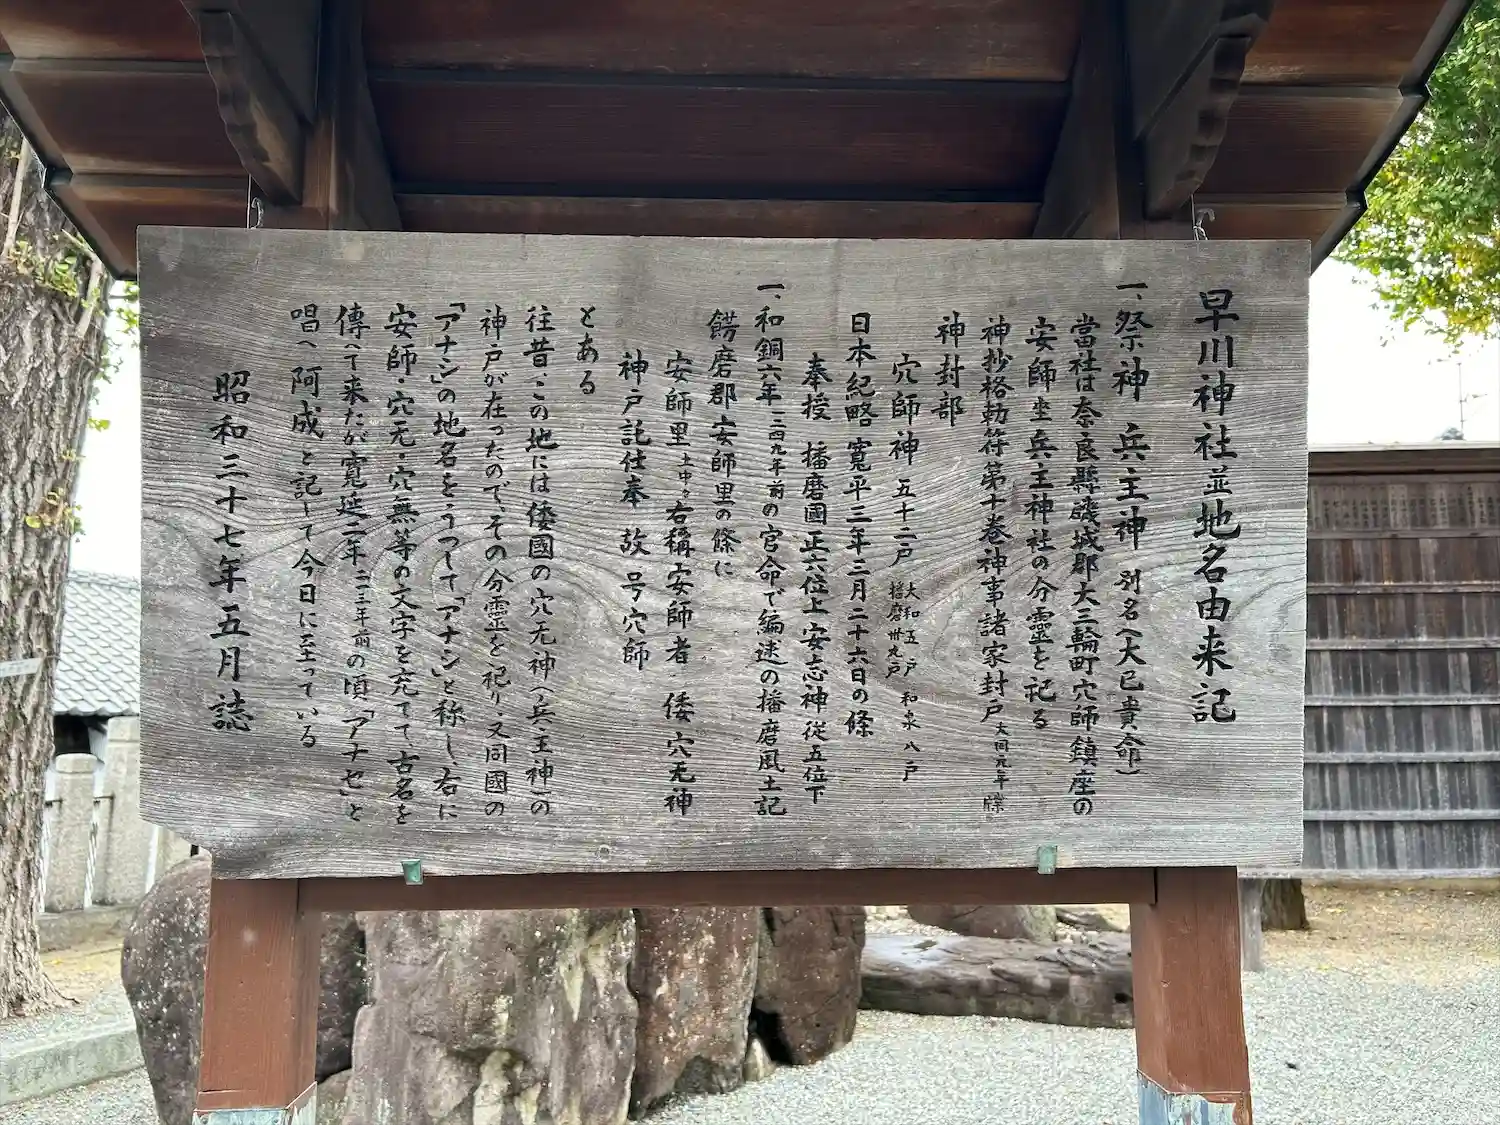 早川神社並地名由来記
一、祭神 兵主神 別名(大已貴命)
當社は奈良縣磯城郡大三輪町穴師鎮座の
安師坐兵主神社の分霊を祀る
神抄格勅符第十巻神事諸家封戸 大同元年牒
神封部
穴師神 五十二戸 大和五戸 和泉八戸
播磨卅九戸
日本紀略 寛平三年三月二十六日の條
奉授 播磨國正六位上安志神従五位下
一、和銅六年 一二四九年前 の官命で編述の播磨風土記
餝磨郡安師里の條に
安師里 土中々 右稱安師者 倭穴无神
神戸託仕奉 故号穴師
とある
往昔この地には倭國の穴无神(兵主神)の
神戸が在ったので、その分靈を祀り、又同國の
「アナシ」の地名をうつして「アナシ」と称し、右に
安師・穴无・穴無等の文字を充てて古名を
傳へて来たが寛延二年 二一三年前 の頃「アナセ」と
唱へ阿成と記して今日に至っている
昭和三十七年五月誌